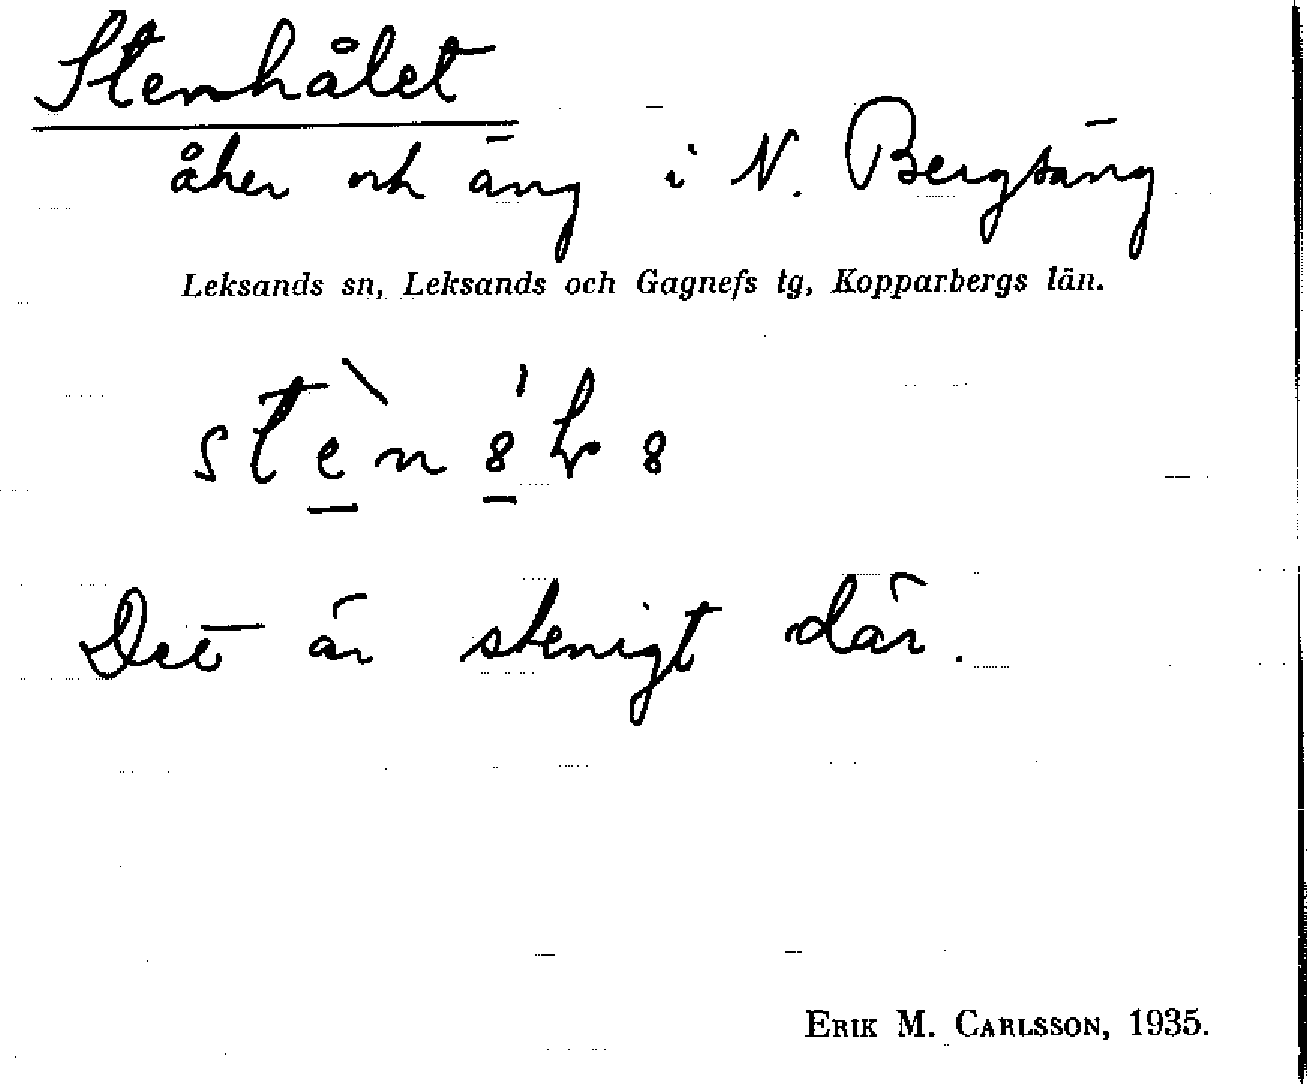 Stenhålet
åker och äng i N. Bergsäng
Leksands sn, Leksands och Gagnefs tg, Kopparbergs län.
Det är stenigt där.
ERIK M. CARLSSON, 1935.